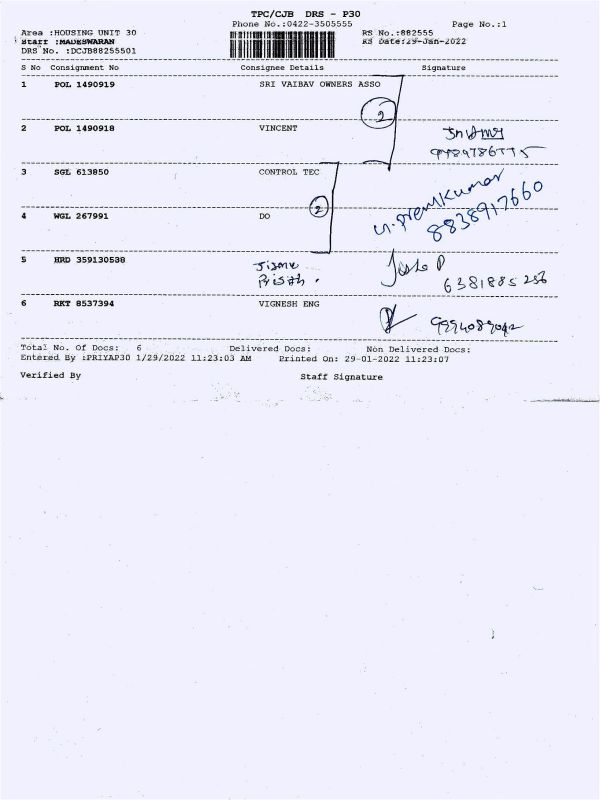 TPC/CJB DRS - P30
Phone No.:0422-3505555 Page No.:1
Area :HOUSING UNIT 30 RS No.:882555
Staff :MADESWARAN RS Date:29-Jan-2022
DRS No. :DCJB88255501
S No Consignment No Consignee Details Signature
1 POL 1490919 SRI VAIBAV OWNERS ASSO
2
2 POL 1490918 VINCENT
3 SGL 613850 CONTROL TEC
2
4 WGL 267991 DO
U. Premkumar
8838917660
5 HRD 359130538
6381885256
6 RKT 8537394 VIGNESH ENG
Total No. Of Docs: 6 Delivered Docs: Non Delivered Docs:
Entered By :PRIYAP30 1/29/2022 11:23:03 AM Printed On: 29-01-2022 11:23:07
Verified By Staff Signature